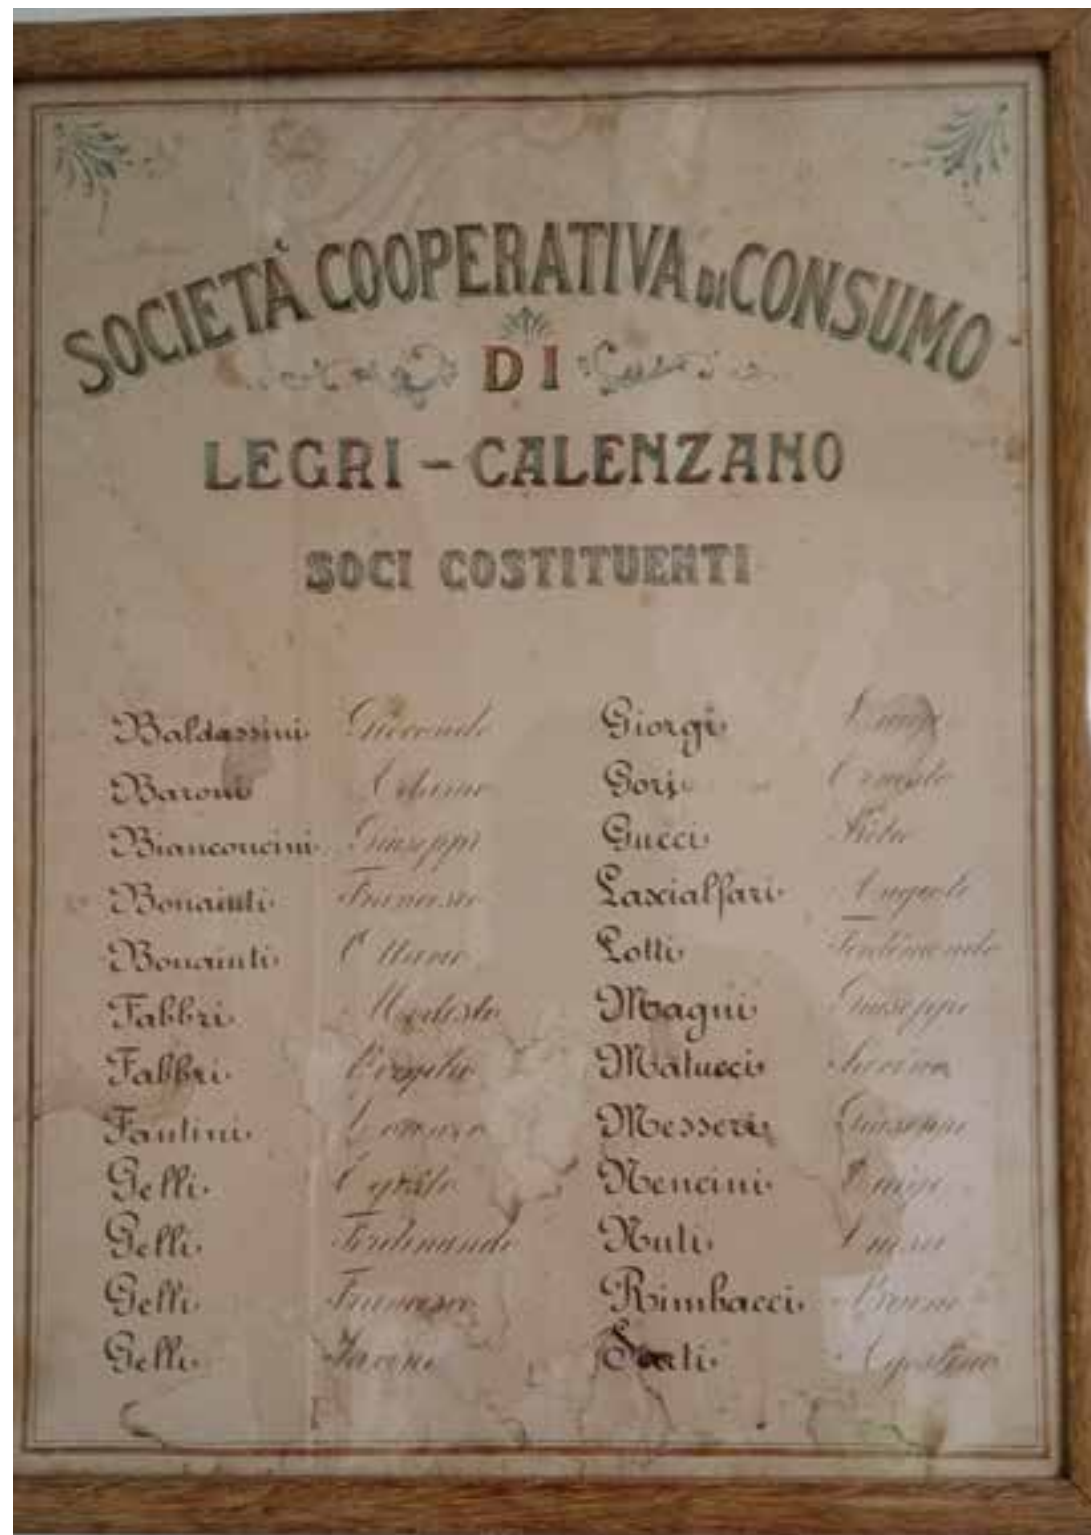 SOCIETÀ COOPERATIVA DI CONSUMO
DI
LEGRI - CALENZANO
SOCI COSTITUENTI
Baldassini Giocondo
Baroni
Bianconcini Giuseppe
Bonaiuti Francesco
Bonaiuti
Fabbri Modesto
Fabbri
Fantini
Gelli
Gelli Ferdinando
Gelli Francesco
Gelli
Giorgi Luigi
Gori Ernesto
Gucci Pietro
Lascialfari Augusto
Lotti Ferdinando
Magni Giuseppe
Matucci
Messeri Giuseppe
Nencini Luigi
Nuti
Rimbacci
Sarti Agostino